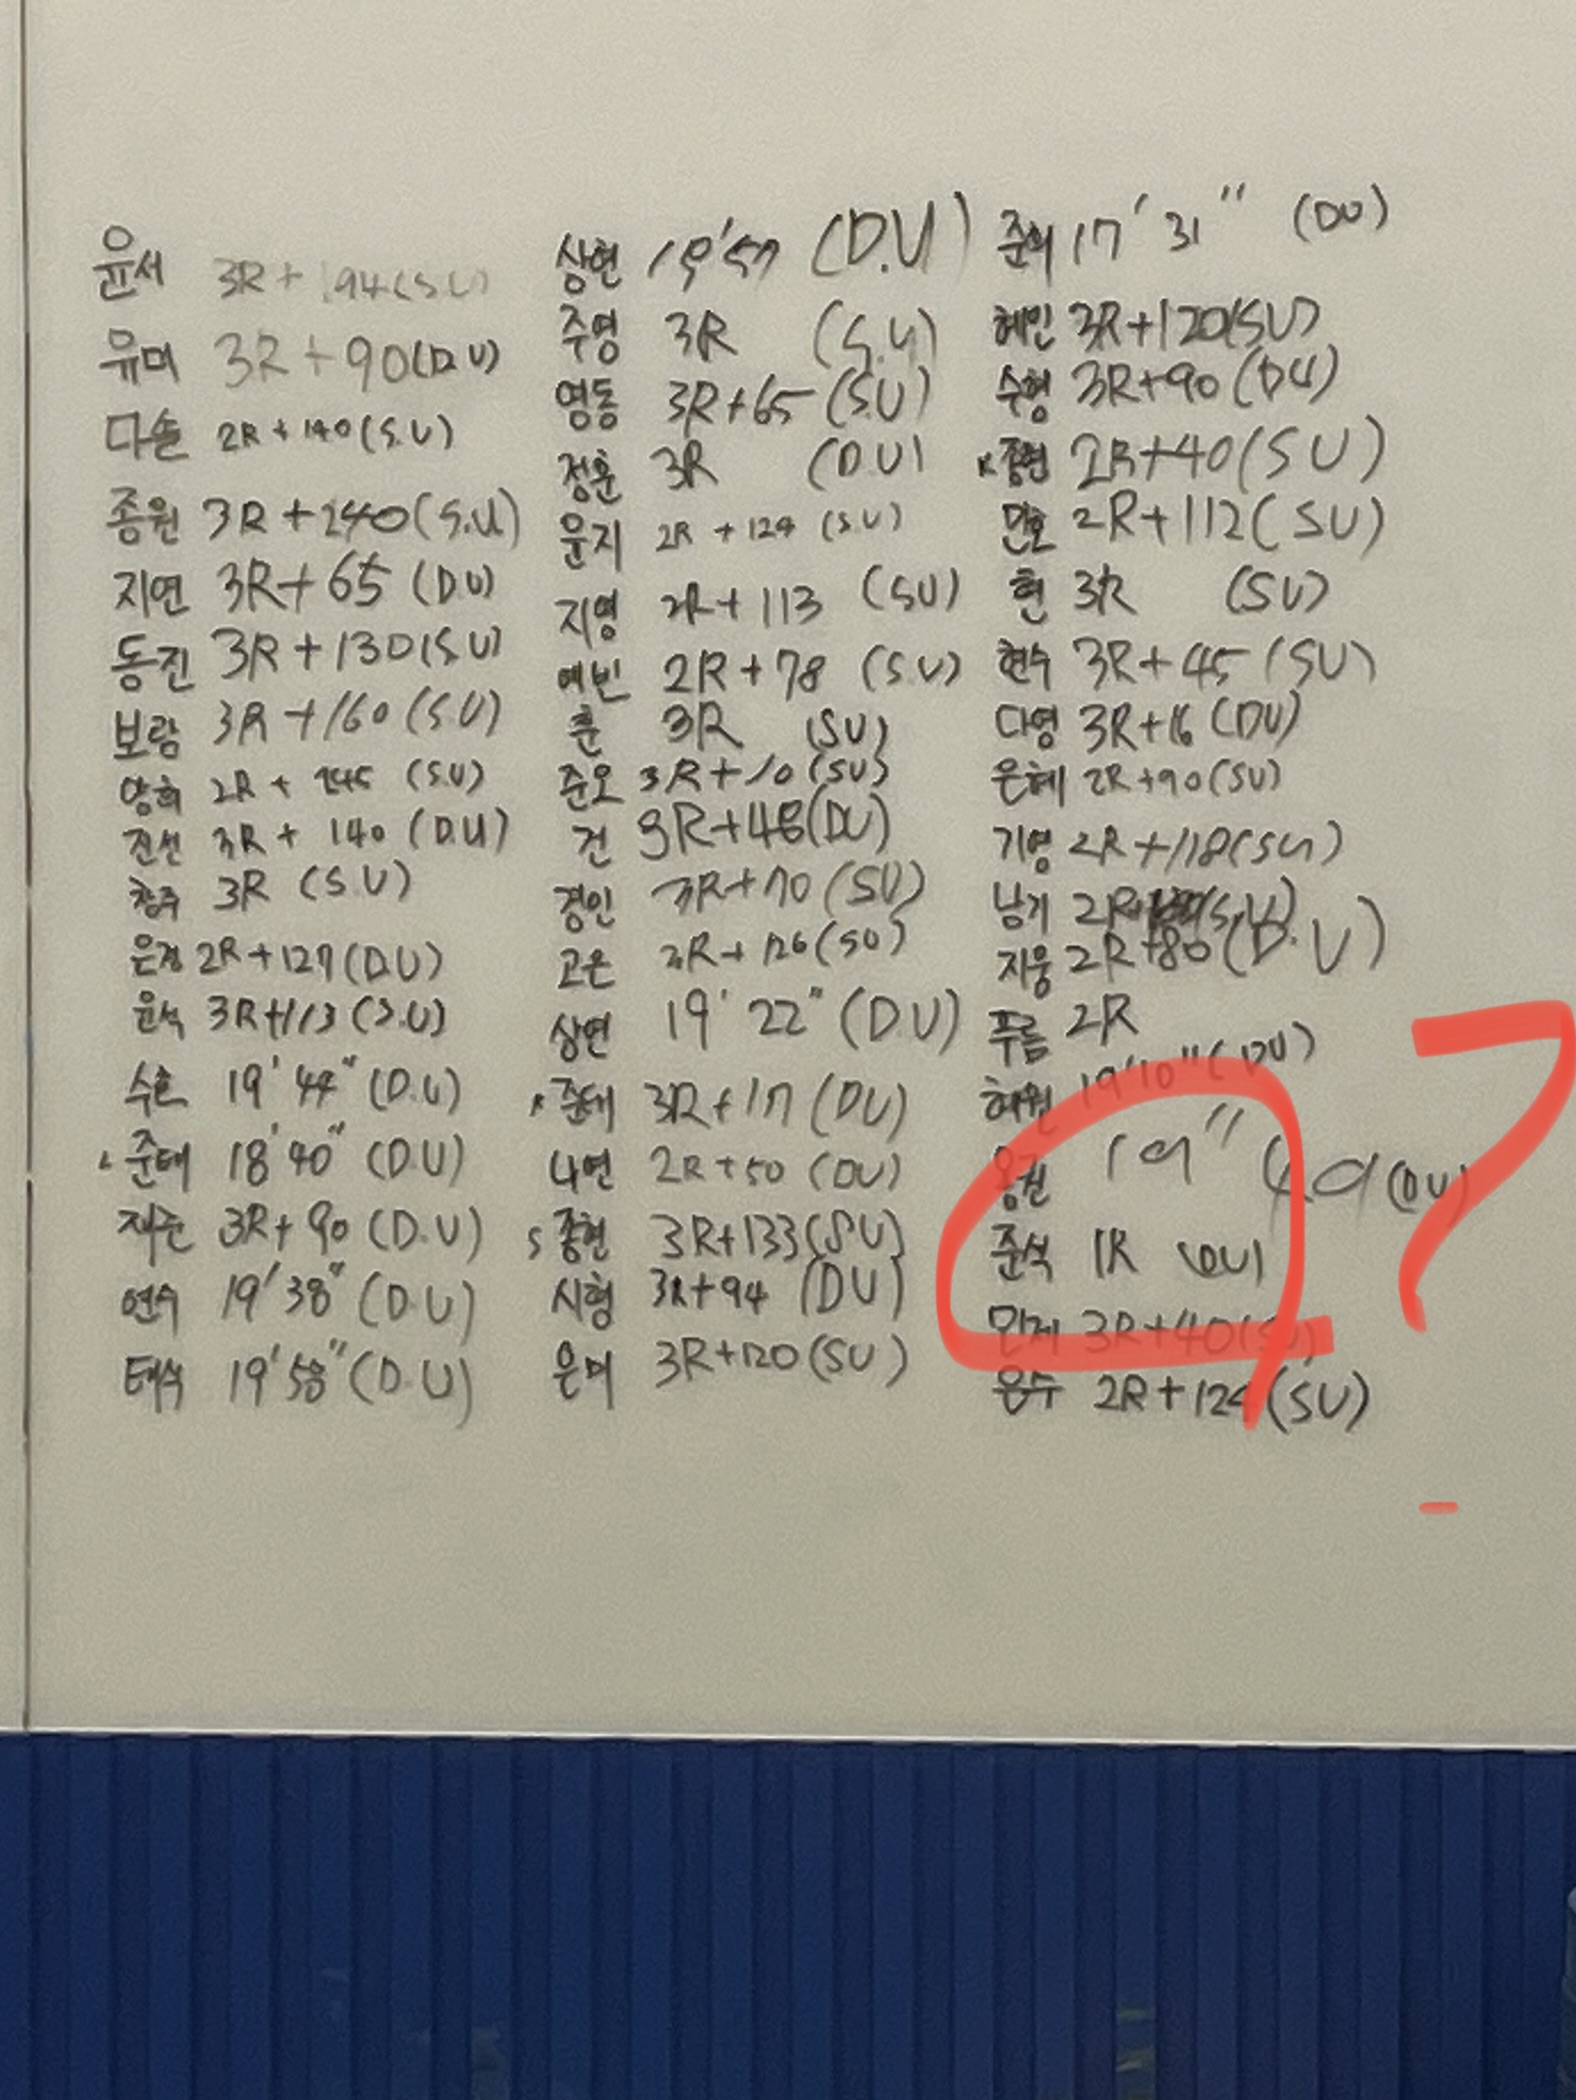 윤서 3R+194(S.U)
유미 3R+90(D.U)
다솔 2R+140(S.U)
종원 3R+240(S.U)
지연 3R+65 (DU)
동진 3R+130(S.U)
보람 3R+160(S.U)
2R+245 (S.U)
진선 3R+140(D.U)
창주 3R (S.U)
은정 2R+127(D.U)
윤석 3R+113(S.U)
수호 19'44"(D.U)
준태 18'40"(D.U)
재준 3R+90(D.U)
연수 19'38"(D.U)
태식 19'58"(D.U)
상현 19'57 (D.U)
주영 3R (S.U)
영동 3R+65(S.U)
정훈 3R (D.U)
윤지 2R+124 (S.U)
지영 2R+113 (SU)
예빈 2R+78 (S.U)
훈 3R (SU)
준오 3R+10(SU)
건 3R+48(DU)
경인 3R+70(SU)
고은 3R+126(SU)
상연 19'22"(D.U)
K준태 3R+17(DU)
나연 2R+50(DU)
S종현 3R+133(SU)
시형 3R+94(DU)
은미 3R+120(SU)
준희 17'31" (DU)
혜인 3R+120(SU)
수형 3R+90(DU)
K종현 2R+40(SU)
민호 2R+112(SU)
현 3R (SU)
현수 3R+45(SU)
다영 3R+16(DU)
은혜 2R+90(SU)
기영 2R+118(SU)
남기 2R (S.U)
지웅 2R+80(D.U)
푸름 2R
혜원 19'10"(DU)
19" 49(DU)
준석 1R (DU)
민지 3R+40(SU)
은수 2R+124(SU)
?